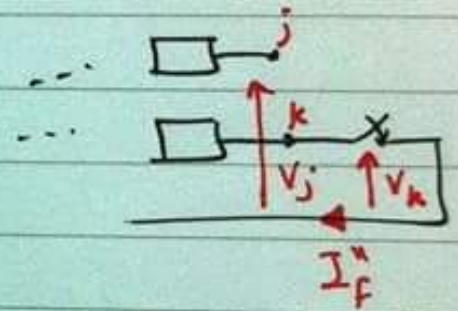 j
k
Vj
Vk
I"f